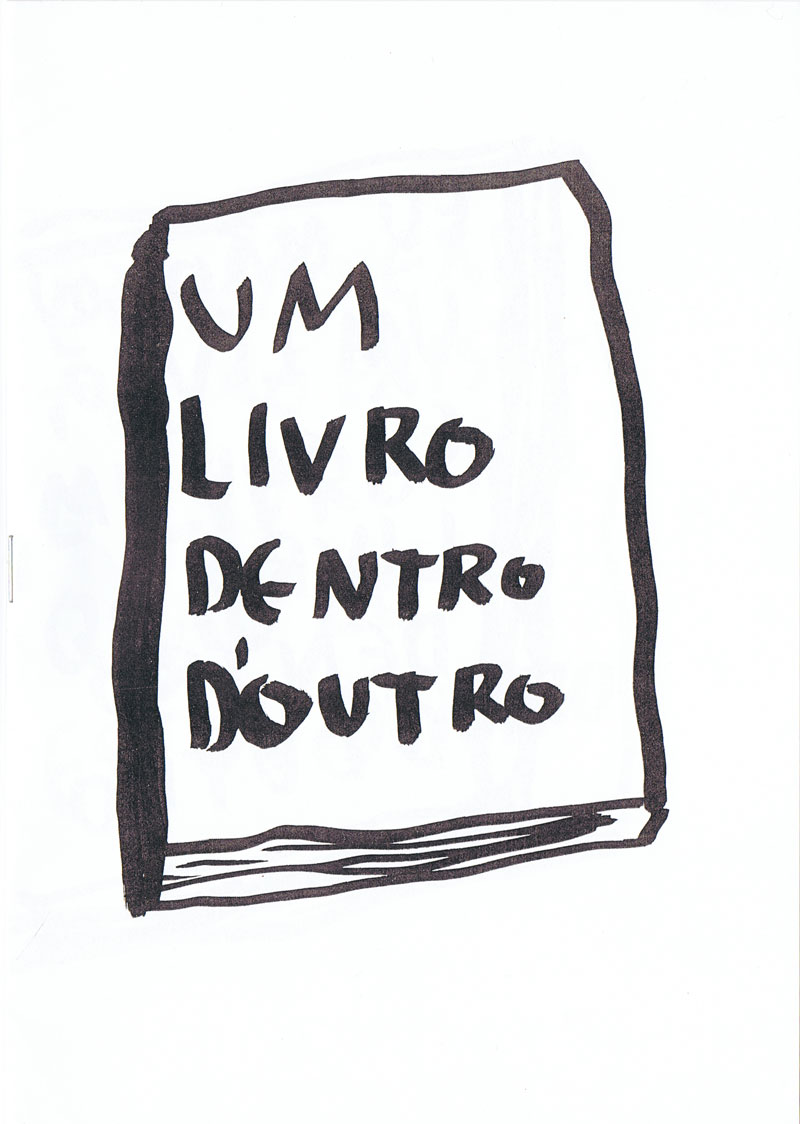 UM
LIVRO
DENTRO
D'OUTRO